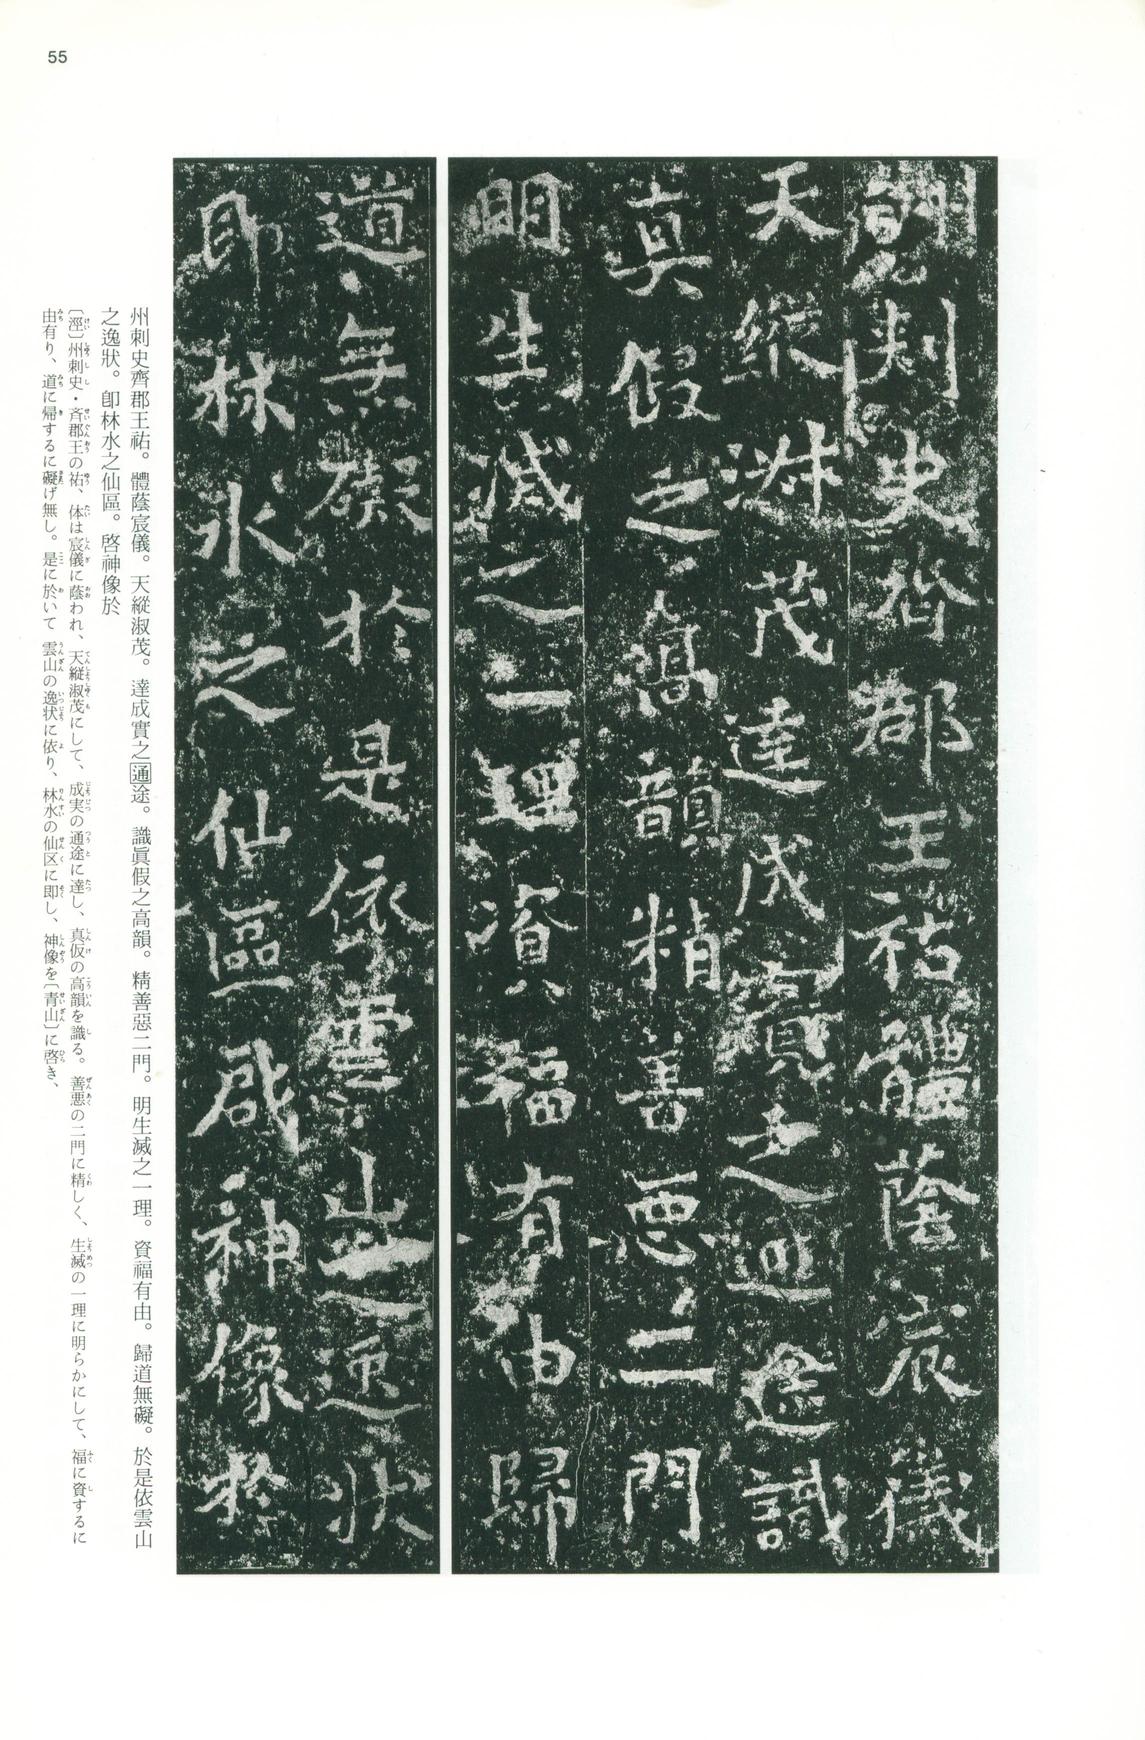 55
州刺史齊郡王祐體蔭宸儀
天縱淑茂達成實之通途識
真假之高韻精善惡二門
明生滅之一理資福有由歸
道無礙於是依雲山之逸狀
即林水之仙區啓神像於
州刺史齊郡王祐。體蔭宸儀。天縱淑茂。達成實之通途。識眞假之高韻。精善惡二門。明生滅之一理。資福有由。歸道無礙。於是依雲山
之逸狀。卽林水之仙區。啓神像於
〔涇〕州刺史・斉郡王の祐、体は宸儀に蔭われ、天縦淑茂にして、成実の通途に達し、真仮の高韻を識る。善悪の二門に精しく、生滅の一理に明らかにして、福に資するに
由有り、道に帰するに礙げ無し。是に於いて雲山の逸状に依り、林水の仙区に即し、神像を〔青山〕に啓き、